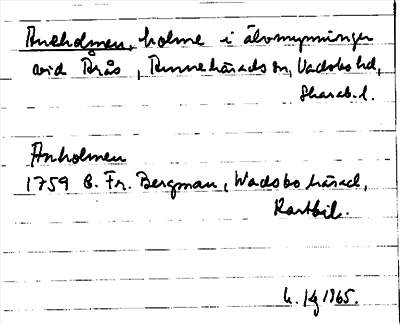 Anholmen, holme i älvmynningen
vid Årås, Kinnehärads sn, Vadsbo hd,
Skarab. l.
Anholmen
1759 B. Fr. Bergman, Wadsbo härad,
Kartbil.
1965.